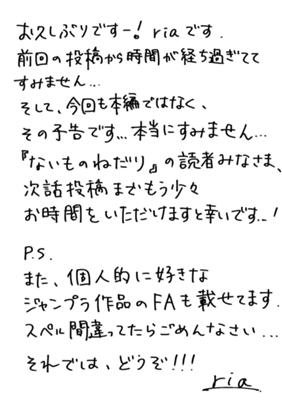 お久しぶりですー! riaです.
前回の投稿から時間が経ち過ぎてて
すみません...
そして、今回も本編ではなく、
その予告です... 本当にすみません...
『ないものねだり』の読者みなさま、
次話投稿までもう少々
お時間をいただけますと幸いです...!
P.S.
また、個人的に好きな
ジャンプラ作品のFAも載せてます.
スペル間違ってたらごめんなさい...
それでは、どうぞ!!!
ria